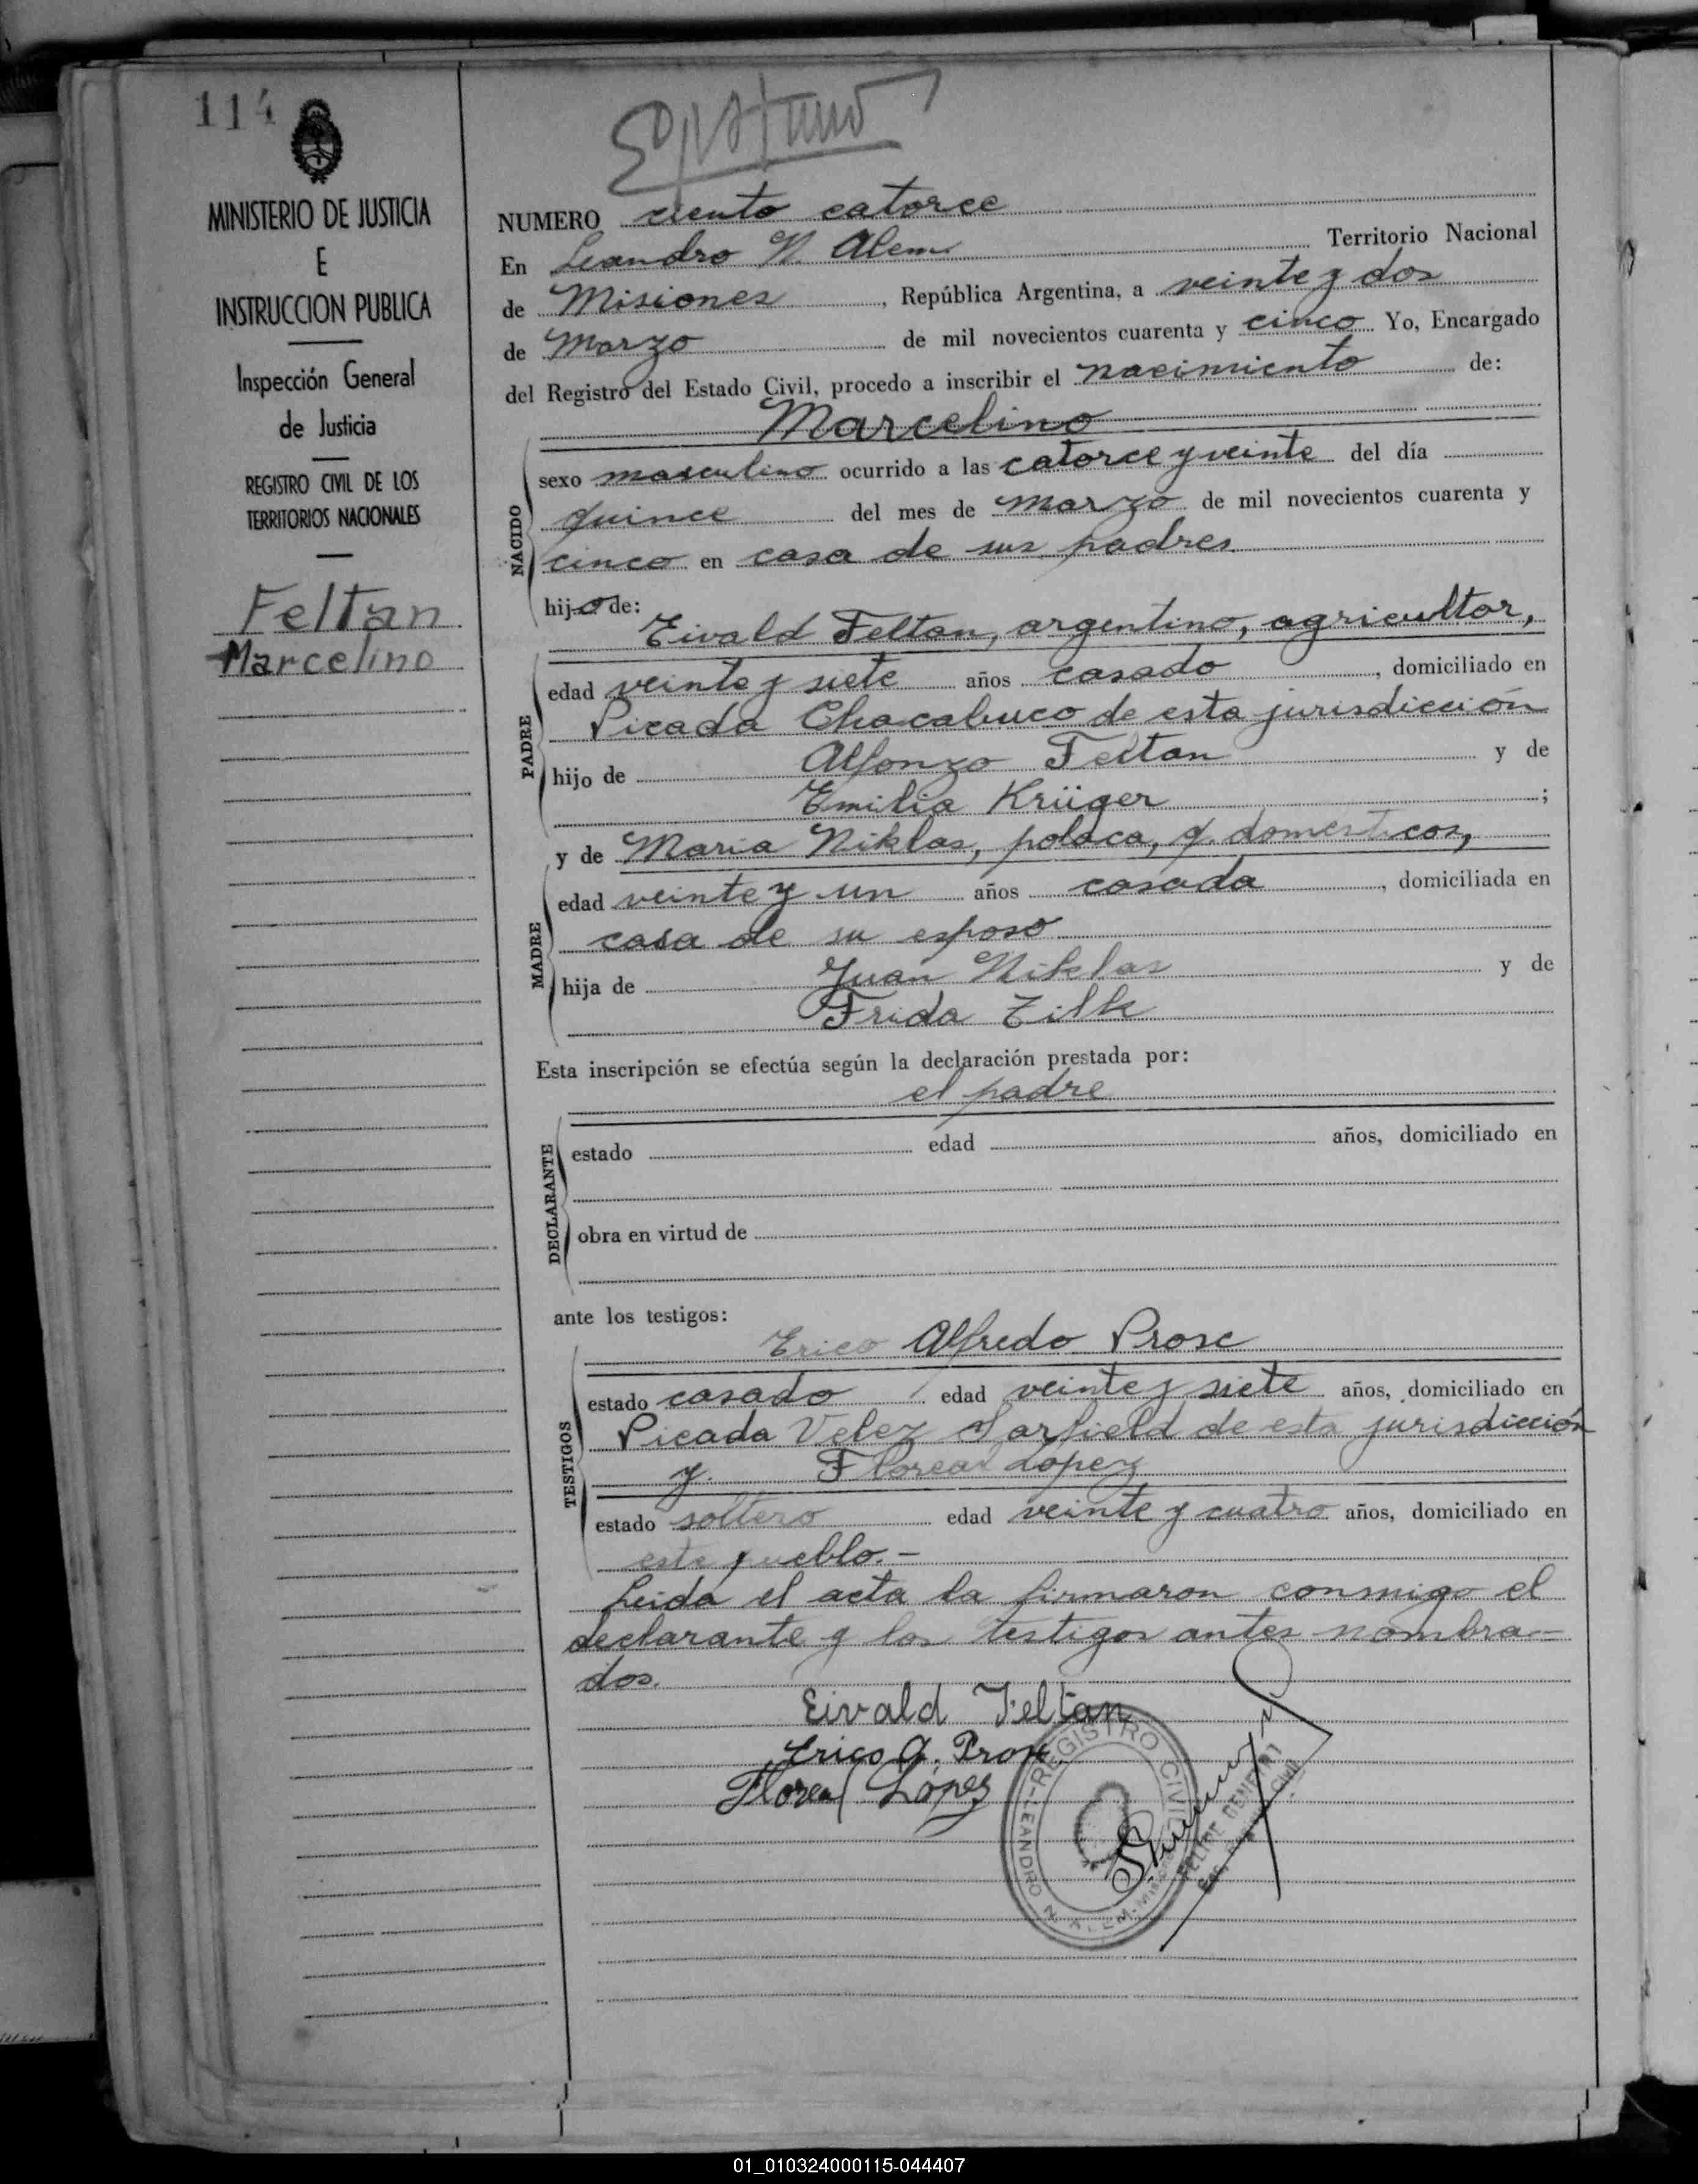 114
MINISTERIO DE JUSTICIA
E
INSTRUCCION PUBLICA
Inspección General
de Justicia
REGISTRO CIVIL DE LOS
TERRITORIOS NACIONALES
Feltan
Marcelino
NUMERO ciento catorce
En Leandro N. Alem Territorio Nacional
de Misiones, República Argentina, a veinte y dos
de Marzo de mil novecientos cuarenta y cinco Yo, Encargado
del Registro del Estado Civil, procedo a inscribir el nacimiento de:
Marcelino
NACIDO
sexo masculino ocurrido a las catorce y veinte del día
quince del mes de Marzo de mil novecientos cuarenta y
cinco en casa de sus padres
hijo de:
Eivald Feltan, argentino, agricultor,
PADRE
edad veinte y siete años casado, domiciliado en
Picada Chacabuco de esta jurisdicción
hijo de Alfonzo Feltan y de
Emilia Krüger;
y de Maria Niklas, polaca, q. domesticos,
MADRE
edad veinte y un años casada, domiciliada en
casa de su esposo
hija de Juan Niklas y de
Frida Zilk
Esta inscripción se efectúa según la declaración prestada por:
el padre
DECLARANTE
estado edad años, domiciliado en
obra en virtud de
ante los testigos:
Erico Alfredo Prose
TESTIGOS
estado casado edad veinte y siete años, domiciliado en
Picada Velez Sarfield de esta jurisdicción
y. Floreal Lopez
estado soltero edad veinte y cuatro años, domiciliado en
este pueblo.-
Leida el acta la firmaron conmigo el
declarante y los testigos antes nombra-
dos.
Eivald Feltan
Erico A. Prose
Floreal López
REGISTRO CIVIL
LEANDRO N. ALEM - Misiones
01_010324000115-044407